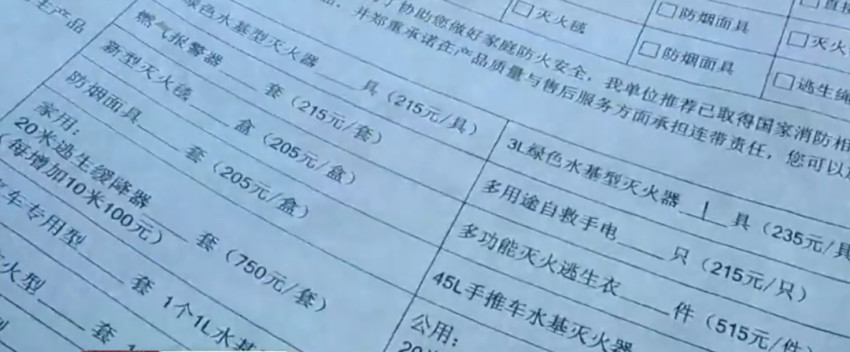 灭火毯
防烟面具
防烟面具
灭火
逃生绳
协助您做好家庭防火安全，我单位推荐已取得国家消防相
并郑重承诺在产品质量与售后服务方面承担连带责任，您可以
产品
绿色水基型灭火器____具（215元/具）
燃气报警器____套（215元/套）
新型灭火毯____盒（205元/盒）
防烟面具____套（205元/盒）
家用：
20米逃生缓降器____套（750元/套）
（每增加10米100元）
车专用型____套 1个1L水基
火型____套
3L绿色水基型灭火器__1__具（235元/具
多用途自救手电____只（215元/只）
多功能灭火逃生衣____件（515元/件）
45L手推车水基灭火器
公用：